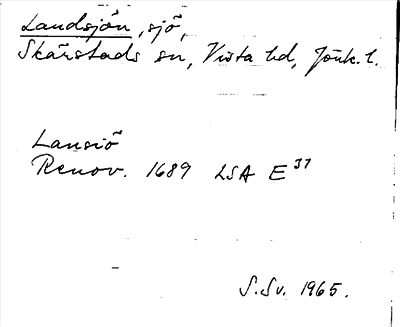 Landsjön, sjö,
Skärstads sn, Vista hd, Jönk. l.
Lansiö
Renov. 1689 LSA E 37
S.Sv. 1965.